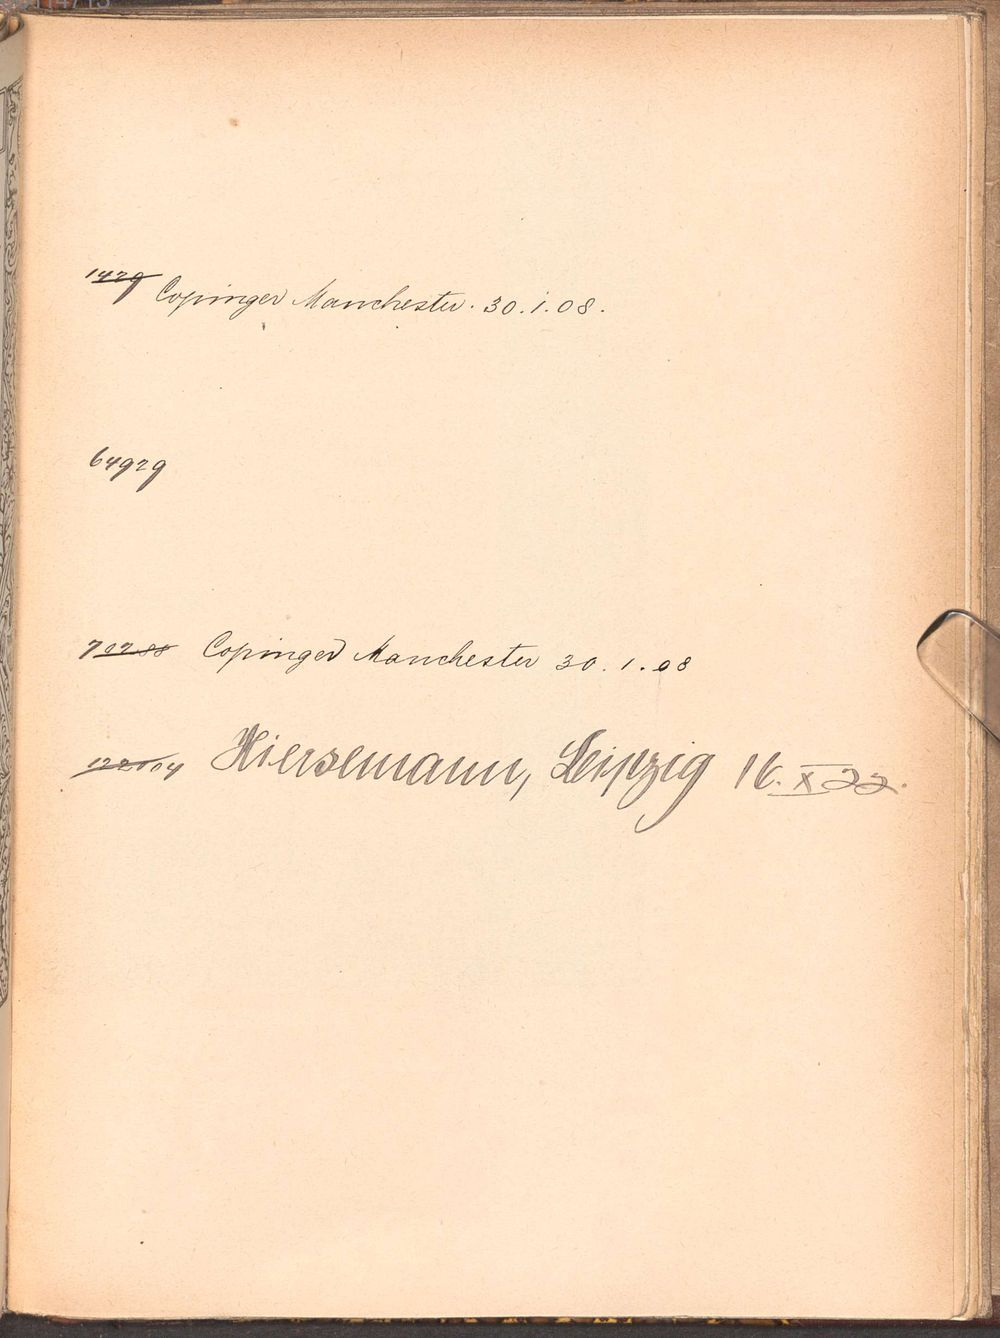 1429 Copinger Manchester. 30.1.08.
64929
70288 Copinger Manchester 30.1.08
122014 Hiersemann, Leipzig 16. X 22.